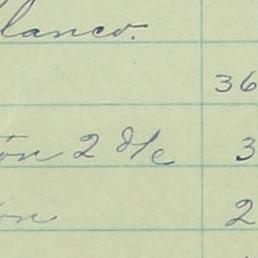 lanco.
36
ón 2 d/c 3
ón 2